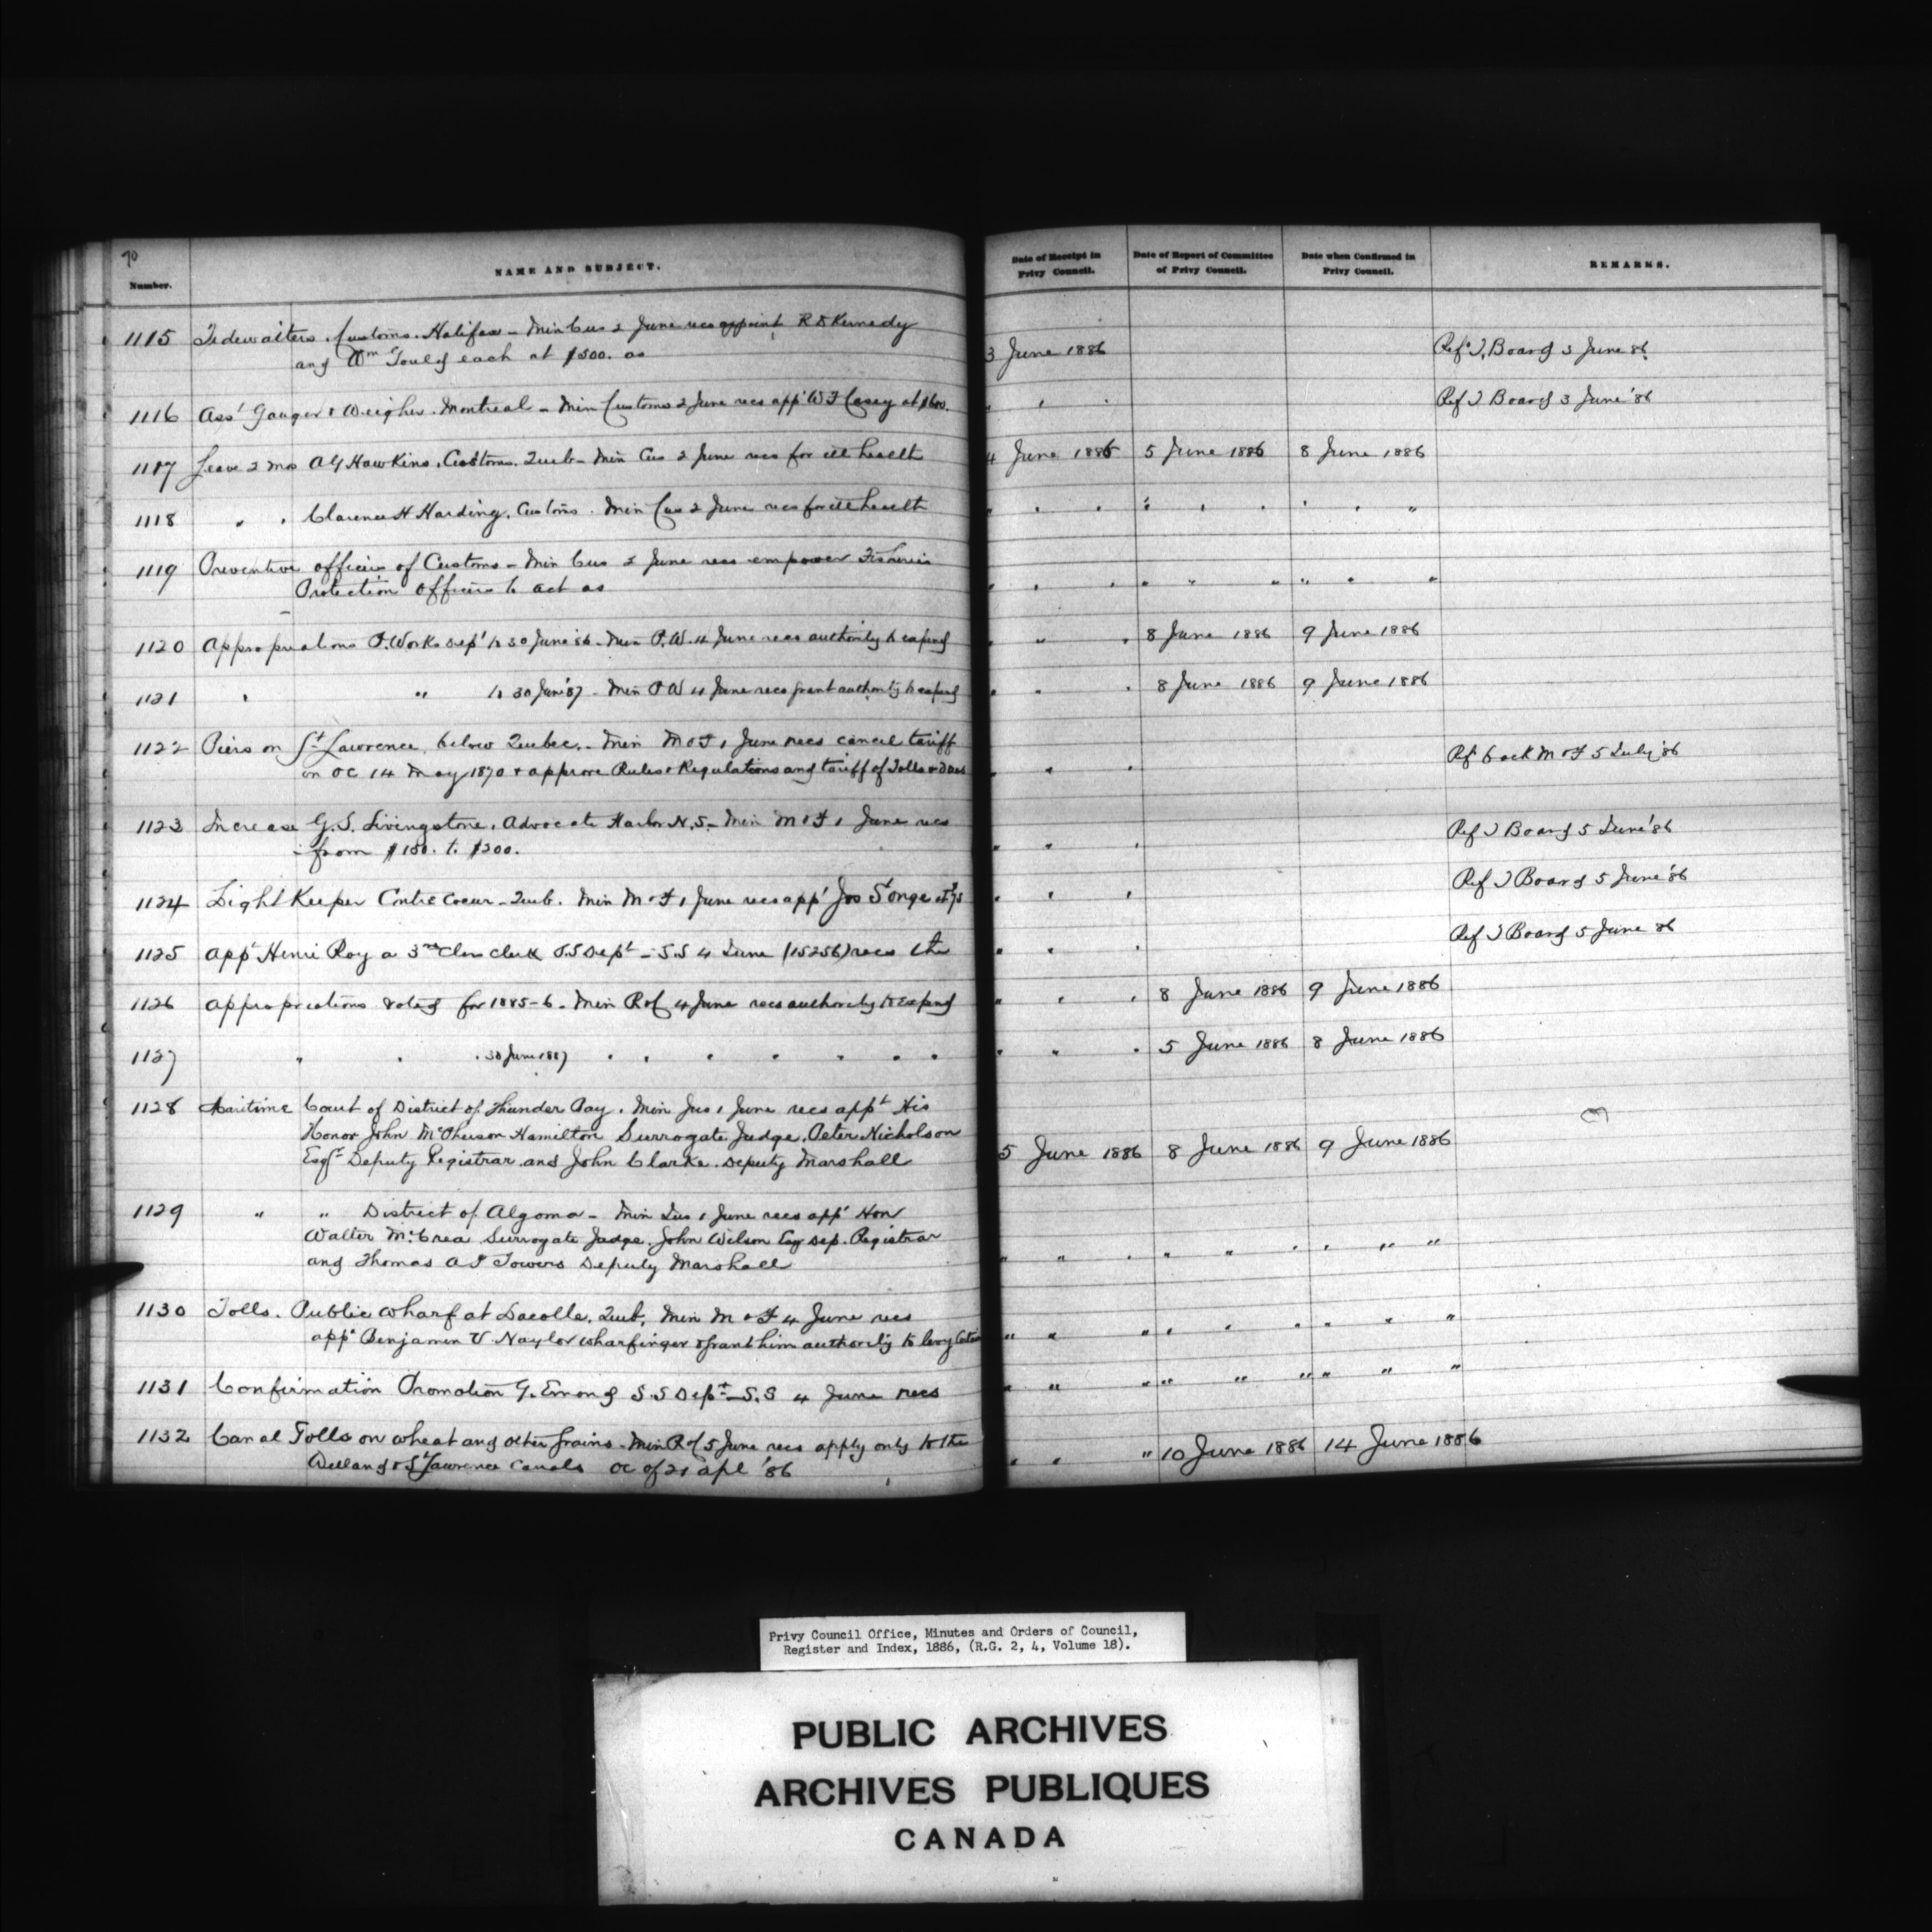 70
Number.
NAME AND SUBJECT.
Date of Receipt in Privy Council.
Date of Report of Committee of Privy Council.
Date when Confirmed in Privy Council.
REMARKS.
1115 Tidewaiters. Customs. Halifax - Min Cus 2 June recs appoint R D Kennedy
and Wm each at $500. as
3 June 1886 Ref. T. Board 3 June 86
1116 Asst Gauger & Weigher. Montreal - Min Customs 2 June recs appt W F Casey at $600.
" " " Ref T Board 3 June '86
1117 Leave 2 mos A G Hawkins. Customs. Queb - Min Cus 2 June recs for ill health
4 June 1886 5 June 1886 8 June 1886
1118 " " Clarence H Harding. Customs. Min Cus 2 June recs for ill health
" " " " " " " " "
1119 Preventive officers of Customs - Min Cus 2 June recs empower Fisheries
Protection Officers to act as
" " " " " " " " "
1120 Appropriations P. Works Dept to 30 June '86 - Min P.W. 4 June recs authority to expend
" " " 8 June 1886 9 June 1886
1121 " " to 30 June '87 - Min P W 4 June recs grant authority to expend
" " " 8 June 1886 9 June 1886
1122 Piers on St Lawrence, below Quebec. - Min M & F 1 June recs cancel tariff
in OC 14 May 1870 & approve Rules & Regulations and tariff of Tolls & Dues
" " " Ref back M & F 5 July '86
1123 Increase G. S. Livingstone, Advocate Harbor N.S. - Min M & F 1 June recs
- from $150. to $200.
" " " Ref T Board 5 June '86
1124 Light Keeper Contrecoeur - Queb. Min M & F 1 June recs appt Jos St Onge at $75
" " " Ref T Board 5 June '86
1125 Appt Henri Roy a 3rd Class clerk S.S Dept - S.S 4 June (15256) recs the
" " " Ref T Board 5 June 86
1126 Appropriations voted for 1885-6 - Min R & C 4 June recs authority to expend
" " " 8 June 1886 9 June 1886
1127 " " " 30 June 1887 " " " " " " "
" " " 5 June 1886 8 June 1886
1128 Maritime Court of District of Thunder Bay. Min Jus 1 June recs appt His
Honor John McPherson Hamilton Surrogate Judge, Peter Nicholson
Esqr Deputy Registrar and John Clarke. Deputy Marshall
5 June 1886 8 June 1886 9 June 1886
1129 " " District of Algoma - Min Jus 1 June recs appt Hon
Walter McCrea Surrogate Judge, John Wilson Esq Dep. Registrar
and Thomas A P Towers Deputy Marshall
" " " " " " " " "
1130 Tolls. Public wharf at Lacolle, Queb, Min M & F 4 June recs
appt Benjamin V. Naylor wharfinger & grant him authority to levy certain
" " " " " " " " "
1131 Confirmation Promotion G. Emond S.S Dept - S.S 4 June recs
" " " " " " " " "
1132 Canal Tolls on wheat and other grains - Min R & C 5 June recs apply only to the
Welland & St Lawrence canals OC of 21 Apl '86
" " " 10 June 1886 14 June 1886
Privy Council Office, Minutes and Orders of Council,
Register and Index, 1886, (R.G. 2, 4, Volume 18).
PUBLIC ARCHIVES
ARCHIVES PUBLIQUES
CANADA